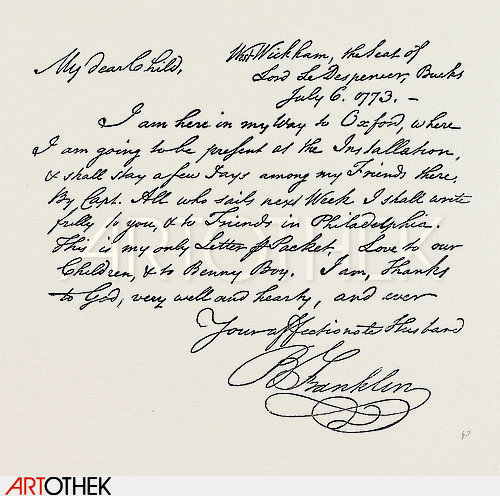 West Wickham, the Seat of
My dear Child,
Lord Le Despencer, Bucks
July 6. 1773. –
I am here in my Way to Oxford, where
I am going to be present at the Installation,
& shall stay a few Days among my Friends there.
By Capt. All who sails next Week I shall write
fully to you, & to Friends in Philadelphia.
This is my only Letter Packet. Love to our
Children, & to Benny Boy. I am, Thanks
to God, very well and hearty, and ever
Your affectionate Husband
B Franklin
ARTOTHEK
ARTOTHEK